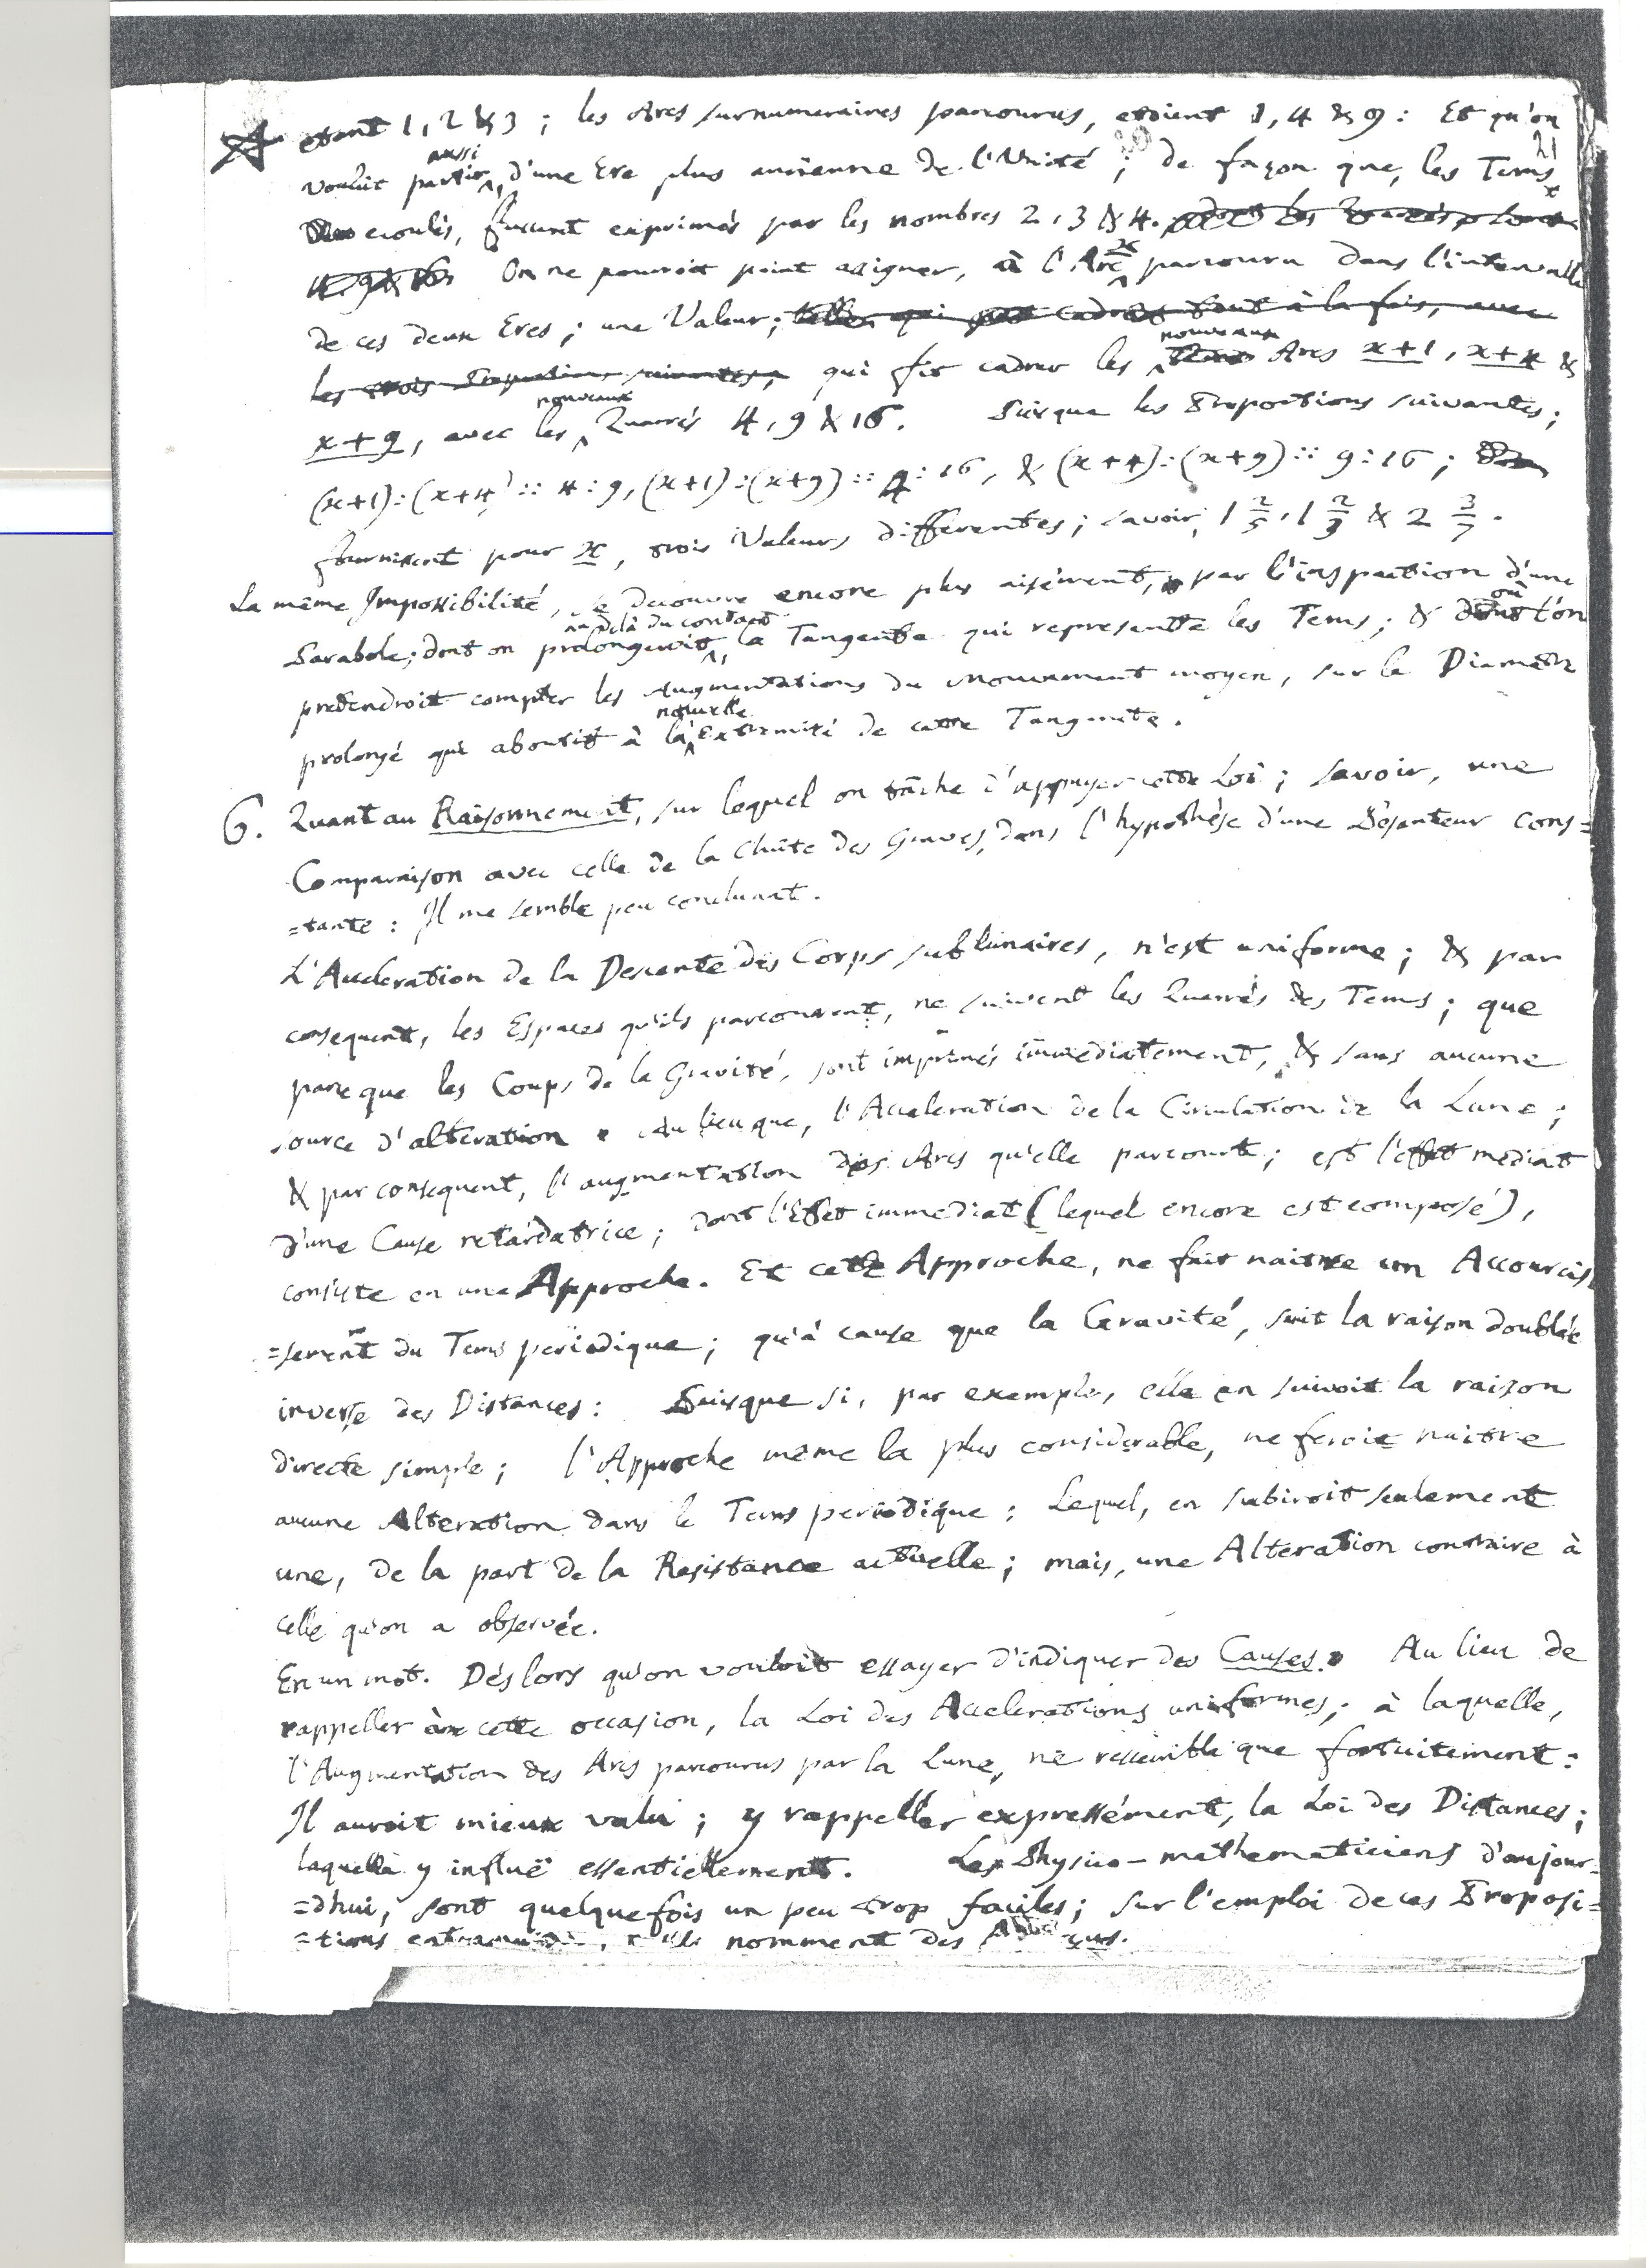 etant 1, 2 & 3 ; les Arcs surnumeraires parcourus, etoient 1, 4 & 9 : Et qu'on
21
aussi
voulût partir d'une Ere plus ancienne de l'Unité ; de façon que, les Tems
ecoulés, fussent exprimés par les nombres 2, 3 & 4.
On ne pourroit point assigner, à l'Arc x parcouru dans l'intervalle
de ces deux Eres ; une Valeur ; telle, qui cadrat tout à la fois, avec
nouveaux
les trois Proportions suivantes, qui fit cadrer les Arcs x+1, x+4 &
nouveaux
x+9, avec les Quarrés 4, 9 & 16. Puisque les Proportions suivantes ;
(x+1):(x+4) :: 4:9, (x+1):(x+9) :: 4:16, & (x+4):(x+9) :: 9:16 ;
fournissent pour x, trois Valeurs differentes ; savoir, 1 2/5, 1 2/3 & 2 3/7.
La même Impossibilité, se decouvre encore plus aisément, par l'inspection d'une
au delà du contact
où
Parabole ; dont on prolongeroit la Tangente qui represente les Tems ; & l'on
pretendroit compter les Augmentations du Mouvement moyen, sur le Diametre
nouvelle
prolongé qui aboutit à la Extremité de cette Tangente.
6. Quant au Raisonnement, sur lequel on tâche d'appuyer cette Loi ; savoir, une
Comparaison avec celle de la Chûte des Graves, dans l'hypothèse d'une Pésanteur cons=
=tante : Il me semble peu concluant.
L'Acceleration de la Descente des Corps sublunaires, n'est uniforme ; & par
consequent, les Espaces qu'ils parcourent, ne suivent les Quarrés des Tems ; que
parce que les Coups de la Gravité, sont imprimés immediatement, & sans aucune
source d'alteration. Au lieu que, l'Acceleration de la Circulation de la Lune ;
& par consequent, l'augmentation des Arcs qu'elle parcourt ; est l'effet mediat
d'une Cause retardatrice ; dont l'Effet immediat (lequel encore est composé),
consiste en une Approche. Et cette Approche, ne fait naitre un Accourcis
=sement du Tems periodique ; qu'à cause que la Gravité, suit la raison doublée
inverse des Distances : Puisque si, par exemple, elle en suivoit la raison
directe simple ; l'Approche même la plus considerable, ne feroit naitre
aucune Alteration dans le Tems periodique : Lequel, en subiroit seulement
une, de la part de la Resistance actuelle ; mais, une Alteration contraire à
celle qu'on a observée.
En un mot. Dès lors qu'on vouloit essayer d'indiquer des Causes. Au lieu de
rappeller à cette occasion, la Loi des Accelerations uniformes ; à laquelle,
l'Augmentation des Arcs parcourus par la Lune, ne ressemble que fortuitement :
Il auroit mieux valu ; y rappeller expressément, la Loi des Distances ;
laquelle y influë essentiellement. Les Physico-mathematiciens d'aujour=
=dhui, sont quelquefois un peu trop faciles ; sur l'emploi de ces Proposi=
=tions nomment des